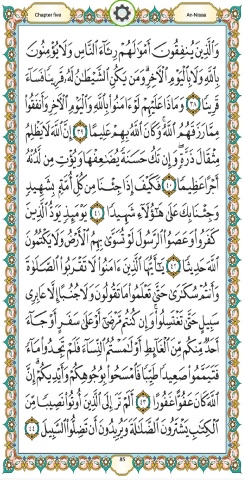 Chapter five An-Nisaa
وَالَّذِينَ يُنفِقُونَ أَمْوَالَهُمْ رِئَاءَ النَّاسِ وَلَا يُؤْمِنُونَ
بِاللَّهِ وَلَا بِالْيَوْمِ الْآخِرِ وَمَن يَكُنِ الشَّيْطَانُ لَهُ قَرِينًا فَسَاءَ
قَرِينًا ٣٨ وَمَاذَا عَلَيْهِمْ لَوْ ءَامَنُوا بِاللَّهِ وَالْيَوْمِ الْآخِرِ وَأَنفَقُوا
مِمَّا رَزَقَهُمُ اللَّهُ وَكَانَ اللَّهُ بِهِمْ عَلِيمًا ٣٩ إِنَّ اللَّهَ لَا يَظْلِمُ
مِثْقَالَ ذَرَّةٍ وَإِن تَكُ حَسَنَةً يُضَاعِفْهَا وَيُؤْتِ مِن لَّدُنْهُ
أَجْرًا عَظِيمًا ٤٠ فَكَيْفَ إِذَا جِئْنَا مِن كُلِّ أُمَّةٍ بِشَهِيدٍ
وَجِئْنَا بِكَ عَلَى هَؤُلَاءِ شَهِيدًا ٤١ يَوْمَئِذٍ يَوَدُّ الَّذِينَ
كَفَرُوا وَعَصَوُا الرَّسُولَ لَوْ تُسَوَّى بِهِمُ الْأَرْضُ وَلَا يَكْتُمُونَ
اللَّهَ حَدِيثًا ٤٢ يَاأَيُّهَا الَّذِينَ ءَامَنُوا لَا تَقْرَبُوا الصَّلَاةَ
وَأَنتُمْ سُكَارَى حَتَّى تَعْلَمُوا مَا تَقُولُونَ وَلَا جُنُبًا إِلَّا عَابِرِي
سَبِيلٍ حَتَّى تَغْتَسِلُوا وَإِن كُنتُم مَّرْضَى أَوْ عَلَى سَفَرٍ أَوْ جَاءَ
أَحَدٌ مِّنكُم مِّنَ الْغَائِطِ أَوْ لَامَسْتُمُ النِّسَاءَ فَلَمْ تَجِدُوا مَاءً
فَتَيَمَّمُوا صَعِيدًا طَيِّبًا فَامْسَحُوا بِوُجُوهِكُمْ وَأَيْدِيكُمْ إِنَّ
اللَّهَ كَانَ عَفُوًّا غَفُورًا ٤٣ أَلَمْ تَرَ إِلَى الَّذِينَ أُوتُوا نَصِيبًا مِّنَ
الْكِتَابِ يَشْتَرُونَ الضَّلَالَةَ وَيُرِيدُونَ أَن تَضِلُّوا السَّبِيلَ ٤٤
85